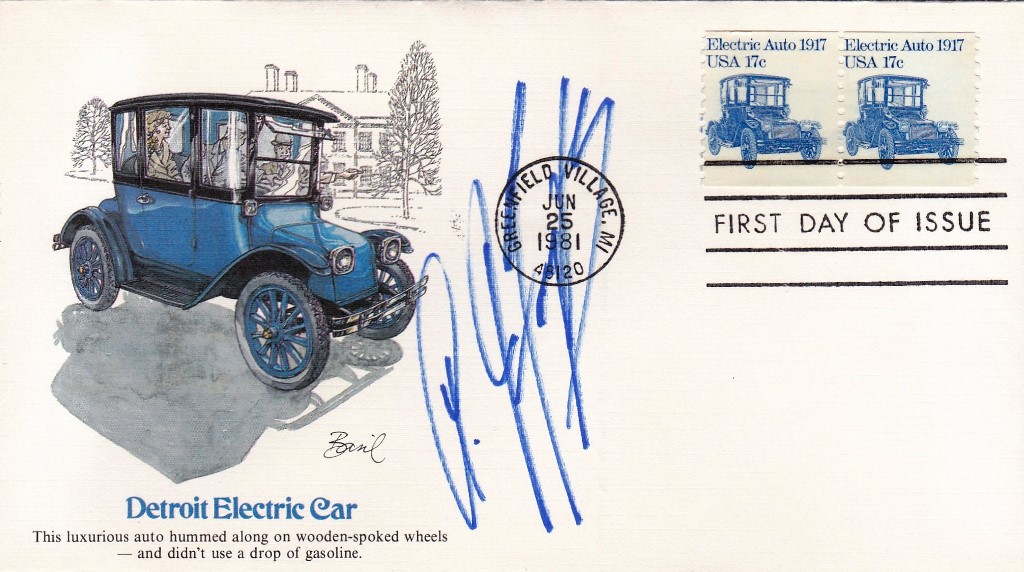 Electric Auto 1917
USA 17c
Electric Auto 1917
USA 17c
GREENFIELD VILLAGE, MI
JUN
25
1981
48120
FIRST DAY OF ISSUE
Basil
Detroit Electric Car
This luxurious auto hummed along on wooden-spoked wheels
— and didn't use a drop of gasoline.